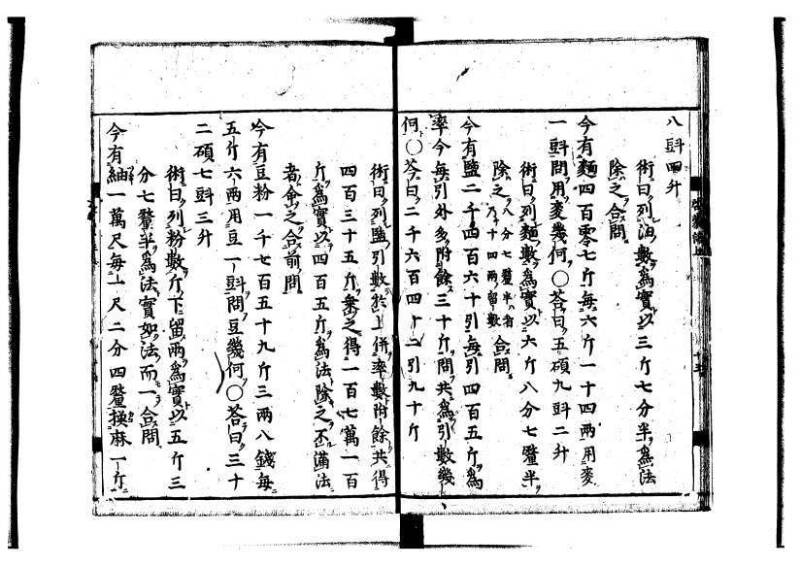 八㪷四升
術曰列油數爲實以三斤七分半爲法
除之合問
今有麵四百零七斤每六斤一十四兩用麥
一㪷問用麥幾何〇荅曰五碩九㪷二升
術曰列麵數爲實以六斤八分七釐半
除之八分七釐半者乃十四兩留數合問
今有鹽二千四百六十引每引四百五斤爲
率今每引外多附餘三十斤問共爲引數幾
何〇荅曰二千六百四十二引九十斤
術曰列鹽引數於上併率數附餘共得
四百三十五斤乗之得一百七萬一百
斤爲實以四百五斤爲法除之不滿法
者命之合前問
今有豆粉一千七百五十九斤三兩八錢每
五斤六兩用豆一㪷問豆幾何〇荅曰三十
二碩七㪷三升
術曰列粉數斤下留兩爲實以五斤三
分七釐半爲法實如法而一合問
今有紬一萬尺每一尺二分四釐換麻一斤